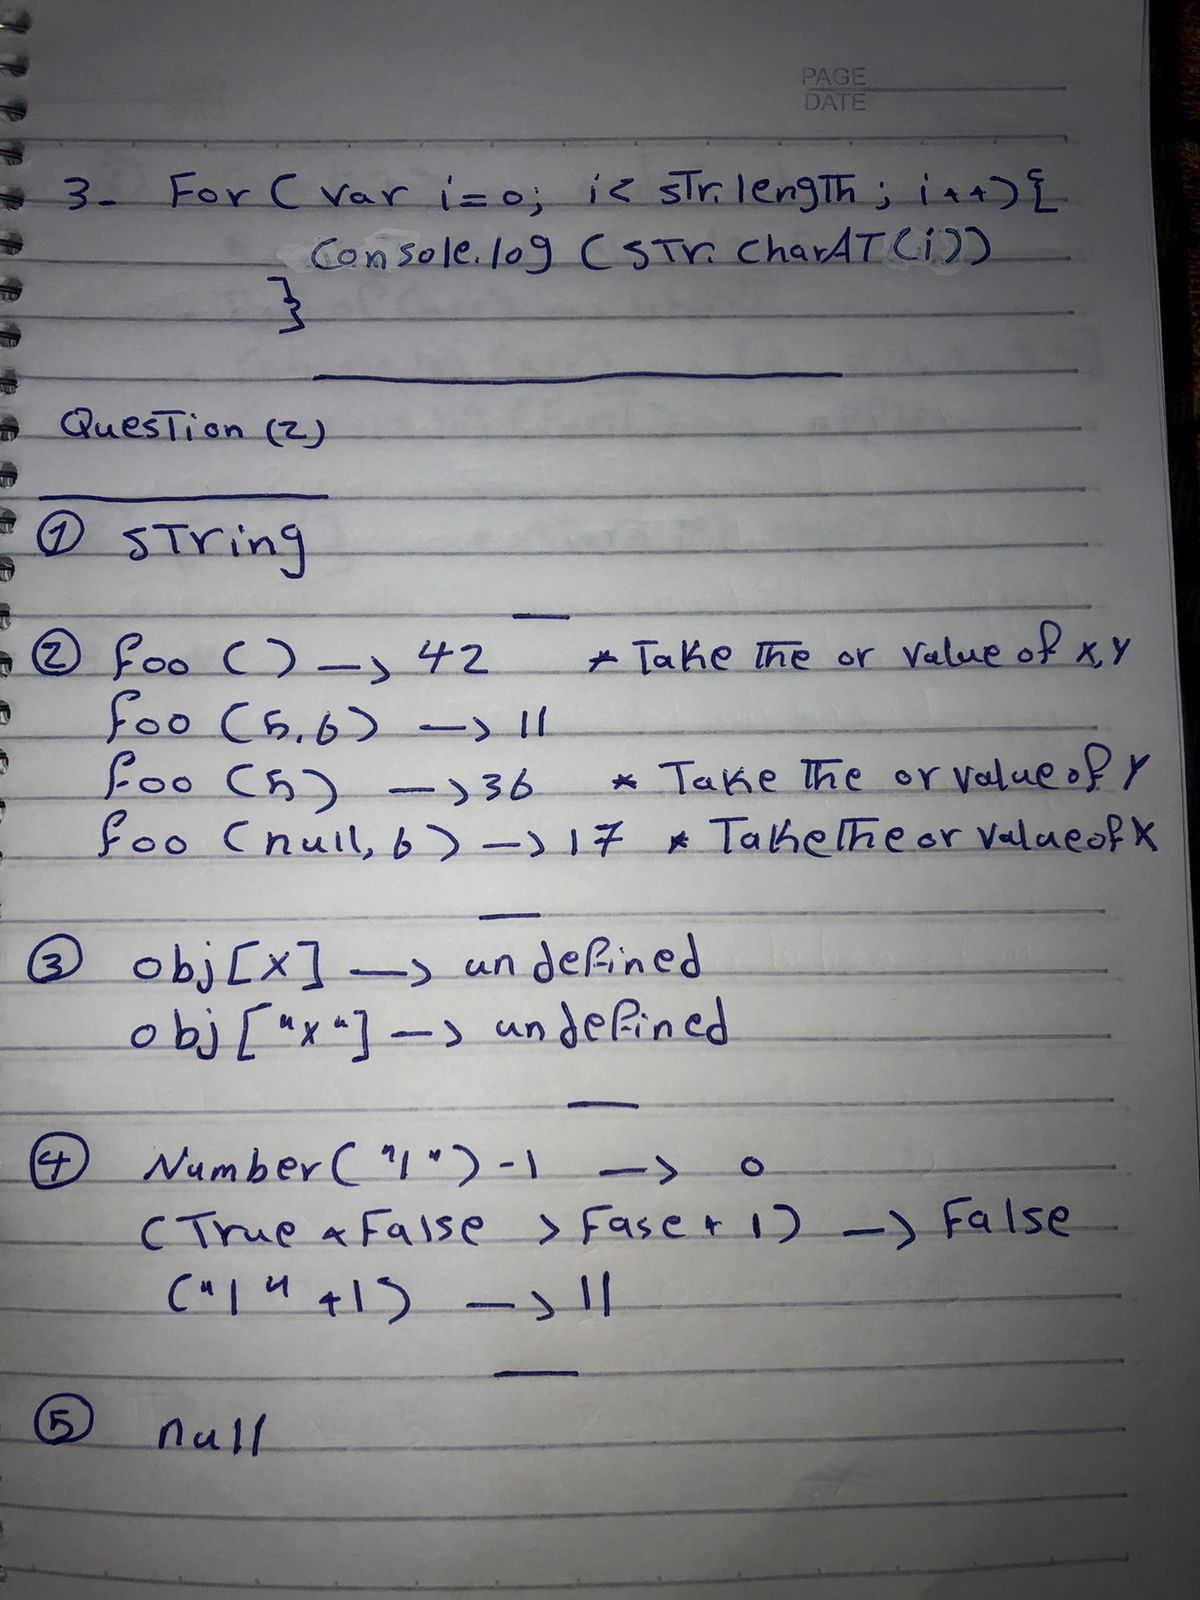 PAGE
DATE
3- For ( var i=0; i< str.length ; i++){
Console.log ( str. CharAT(i))
}
Question (2)
① String
② foo () → 42 * Take the or value of x,y
foo (5,6) → 11
foo (5) → 36 * Take the or value of y
foo (null, 6) → 17 * Take the or value of x
③ obj[x] → undefined
obj["x"] → undefined
④ Number("1") -1 → 0
(True * False > Fase + 1) → False
("1" +1) → 11
⑤ null